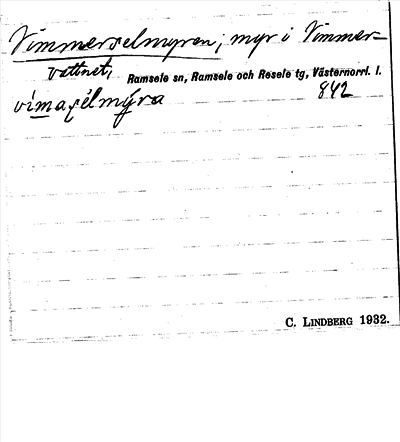 Vimmerselmyren; myr i Vimmer-
vattnet, Ramsele sn, Ramsele och Resele tg, Västernorrl. l.
vímasélmýra 842
C. LINDBERG 1932.